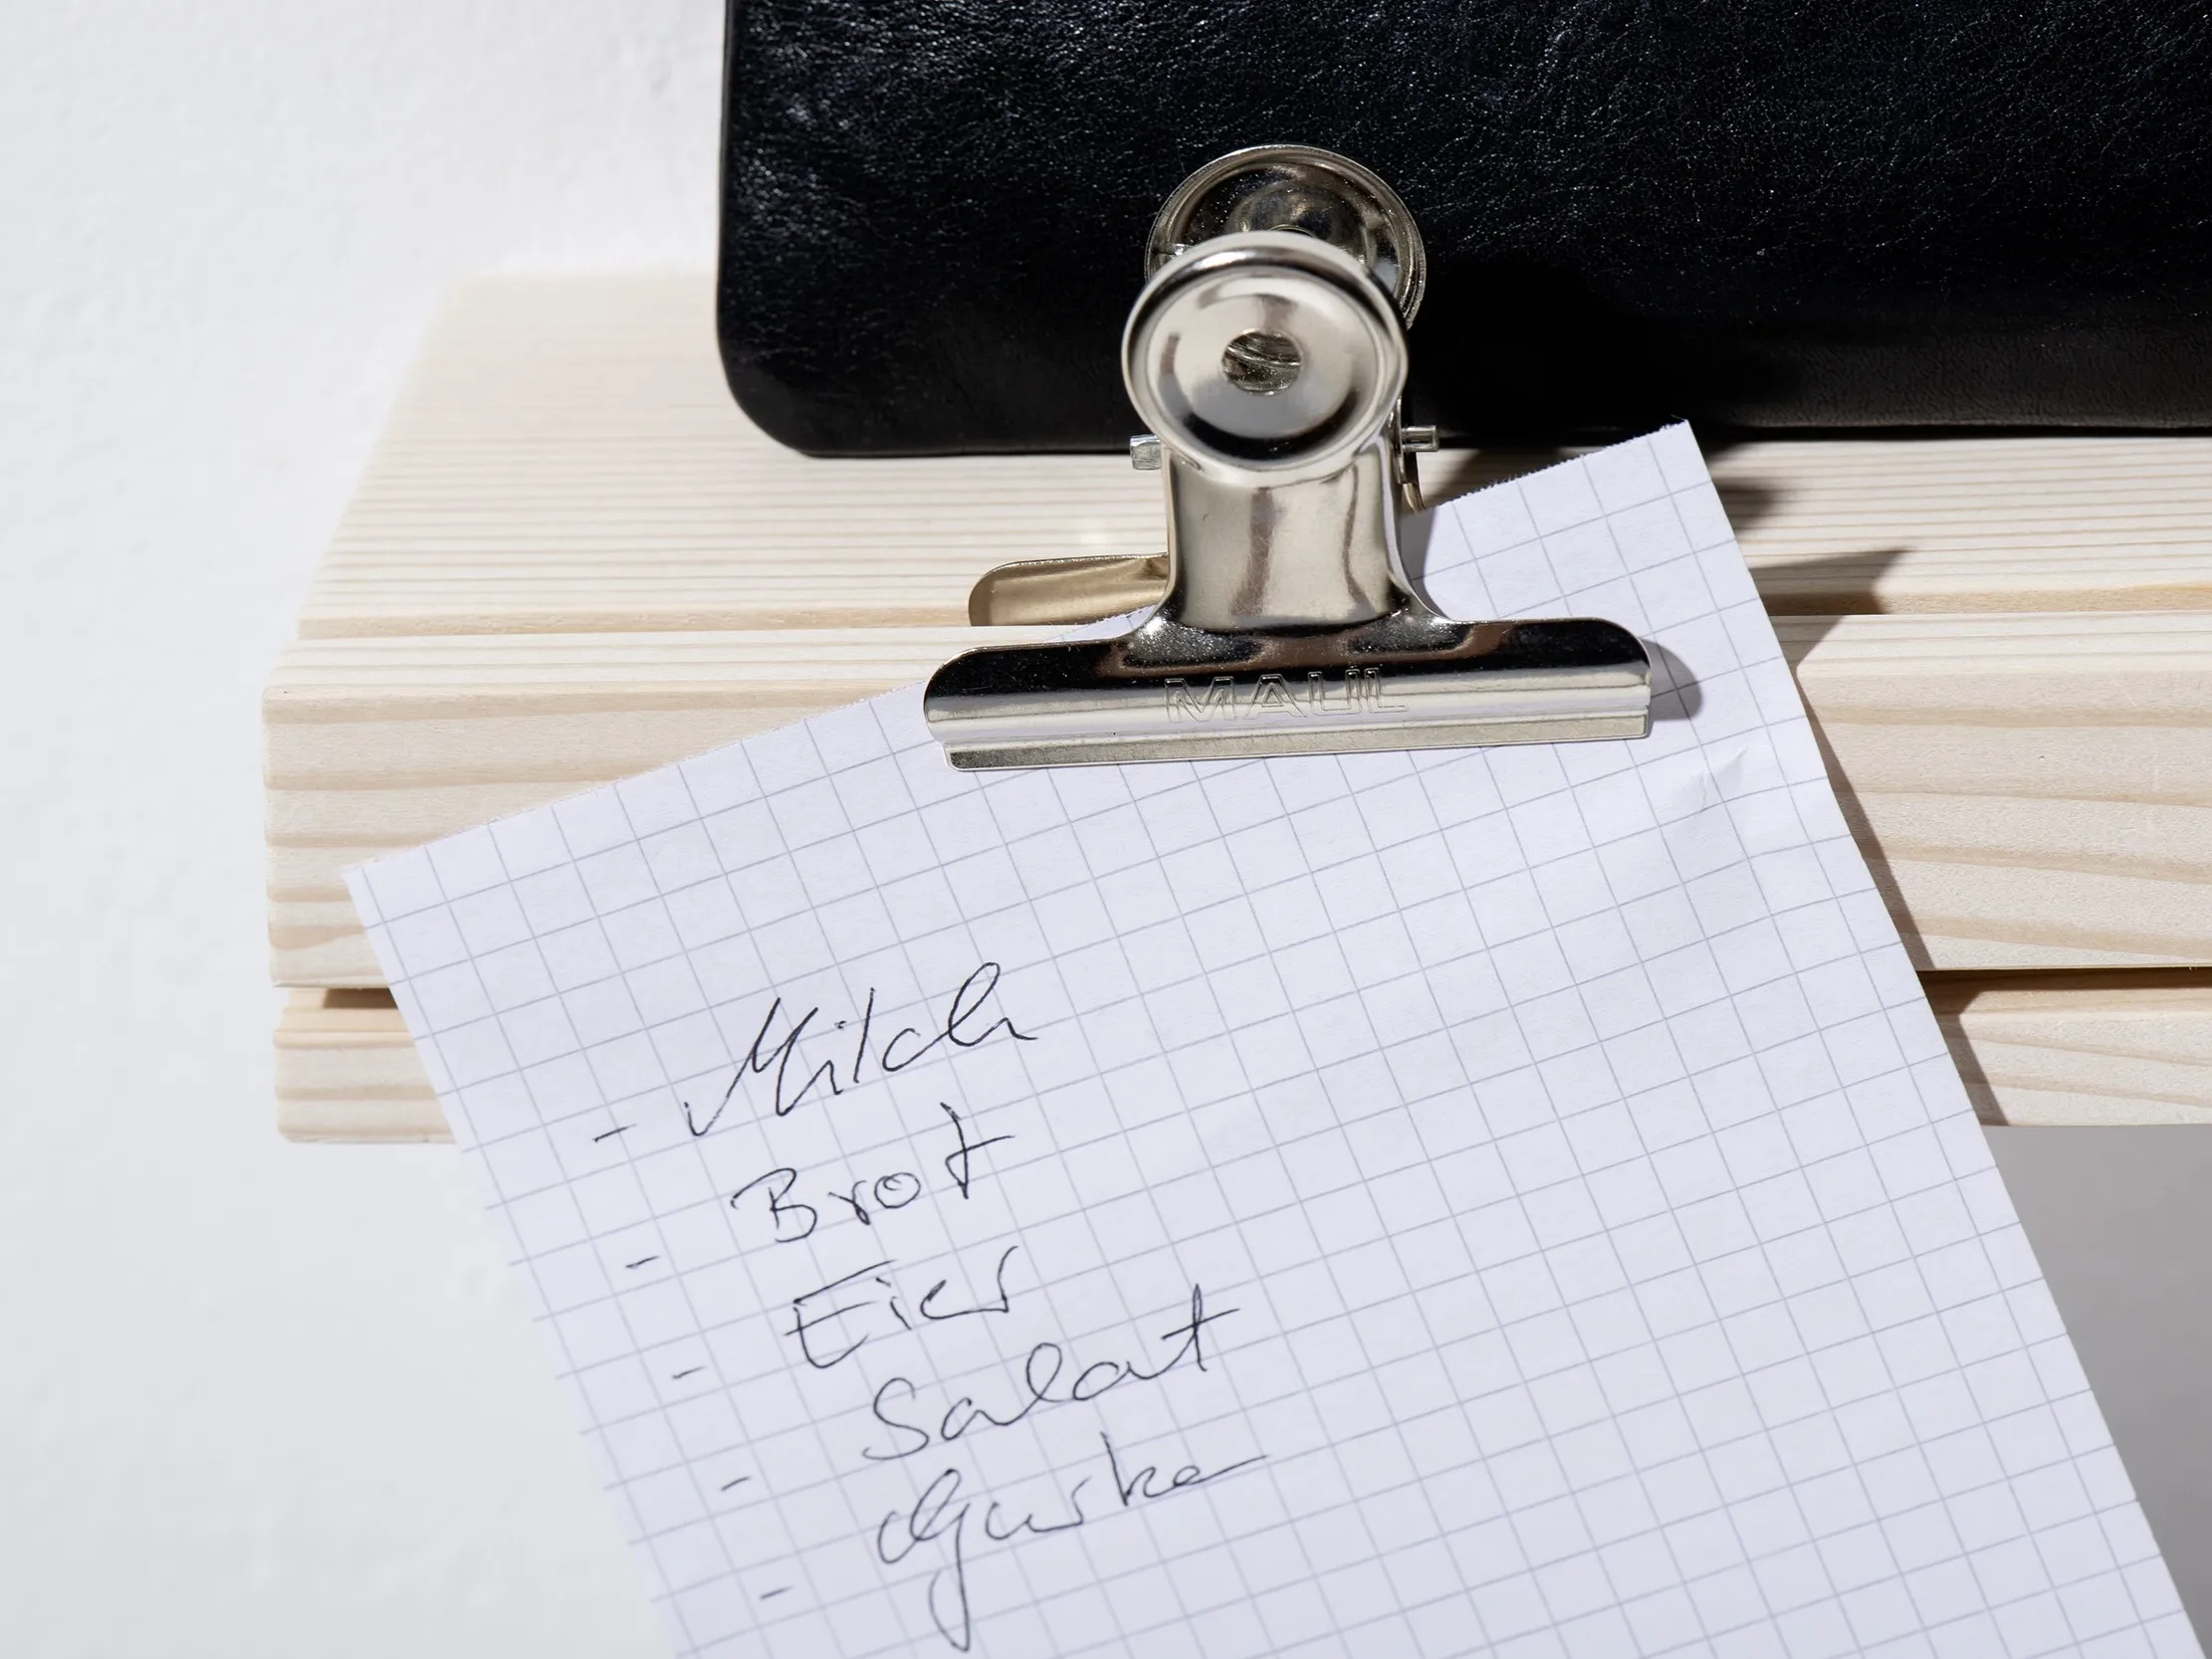 MAUL
- Milch
- Brot
- Eier
- Salat
- Gurke